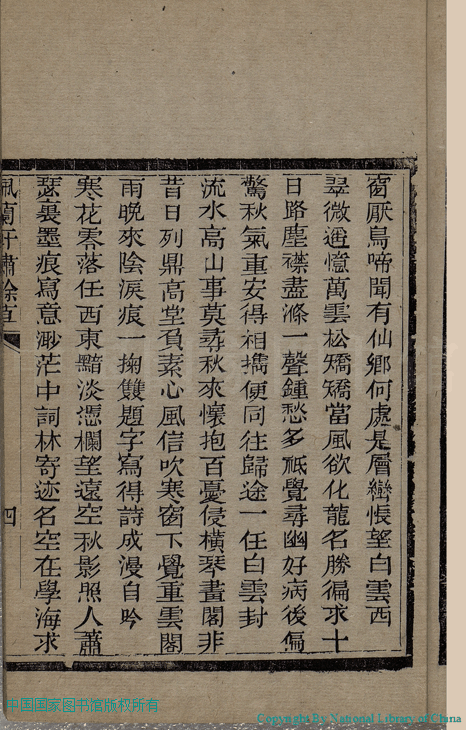 窗厭鳥啼聞有仙鄉何處是層巒悵望白雲西
翠微遥憶萬雲松矯矯當風欲化龍名勝徧求十
日路塵襟盡滌一聲鍾愁多秪覺尋幽好病後偏
驚秋氣重安得相攜便同往歸途一任白雲封
流水高山事莫尋秋來懷抱百憂侵橫琴畫閣非
昔日列鼎高堂負素心風信吹寒窗下覺重雲閣
雨晚來陰淚痕一掬雙題字寫得詩成漫自吟
寒花零落任西東黯淡憑欄望遠空秋影照人蕭
瑟裏墨痕寫意渺茫中詞林寄迹名空在學海求
佩蘭軒繡餘草
四
中国国家图书馆版权所有
Copyright By National Library of China